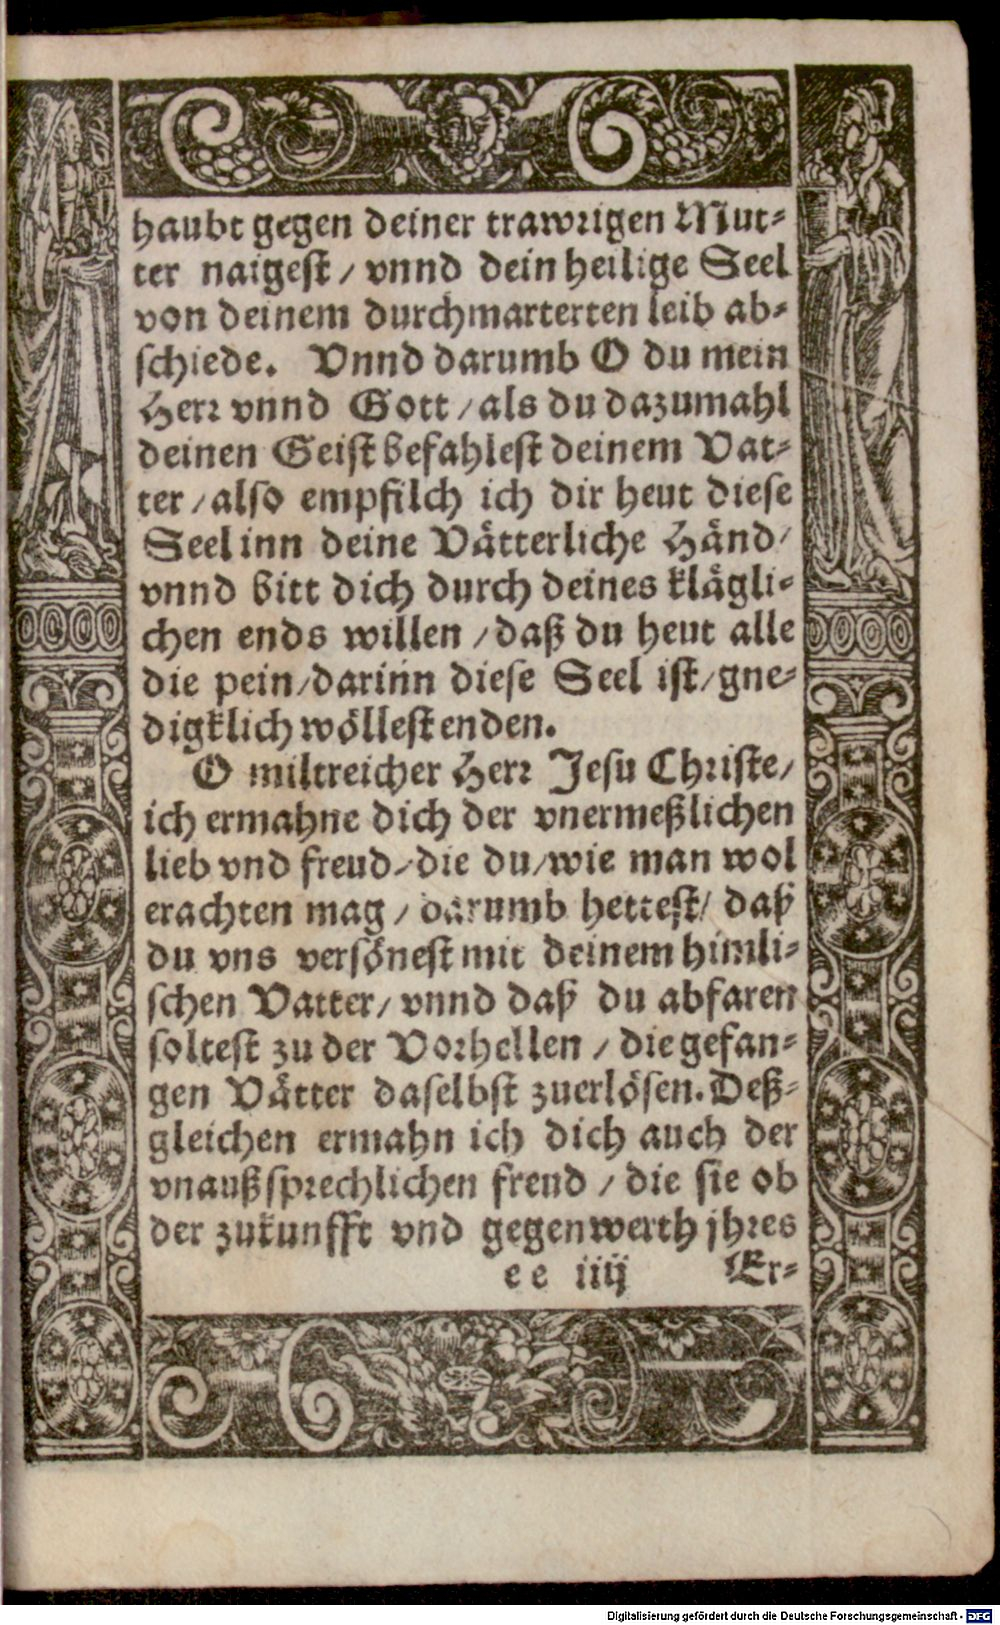 haubt gegen deiner trawrigen Mut-
ter naigest / vnnd dein heilige Seel
von deinem durchmarterten leib ab-
schiede. Vnnd darumb O du mein
Herr vnnd Gott / als du dazumahl
deinen Geist befahlest deinem Vat-
ter / also empfilch ich dir heut diese
Seel inn deine Vätterliche Händ /
vnnd bitt dich durch deines klägli-
chen ends willen / daß du heut alle
die pein / darinn diese Seel ist / gne-
digklich wöllest enden.
O miltreicher Herr Jesu Christe /
ich ermahne dich der vnermeßlichen
lieb vnd freud / die du / wie man wol
erachten mag / darumb hettest / daß
du vns versönest mit deinem himli-
schen Vatter / vnnd daß du abfaren
soltest zu der Vorhellen / die gefan-
gen Vätter daselbst zuerlösen. Deß-
gleichen ermahn ich dich auch der
vnaußsprechlichen freud / die sie ob
der zukunfft vnd gegenwerth jhres
ee iiij Er-
Digitalisierung gefördert durch die Deutsche Forschungsgemeinschaft - DFG